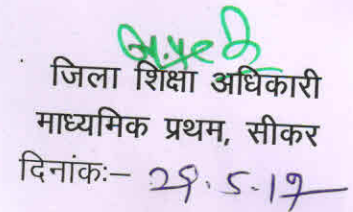 जिला शिक्षा अधिकारी
माध्यमिक प्रथम, सीकर
दिनांकः– 29.5.17